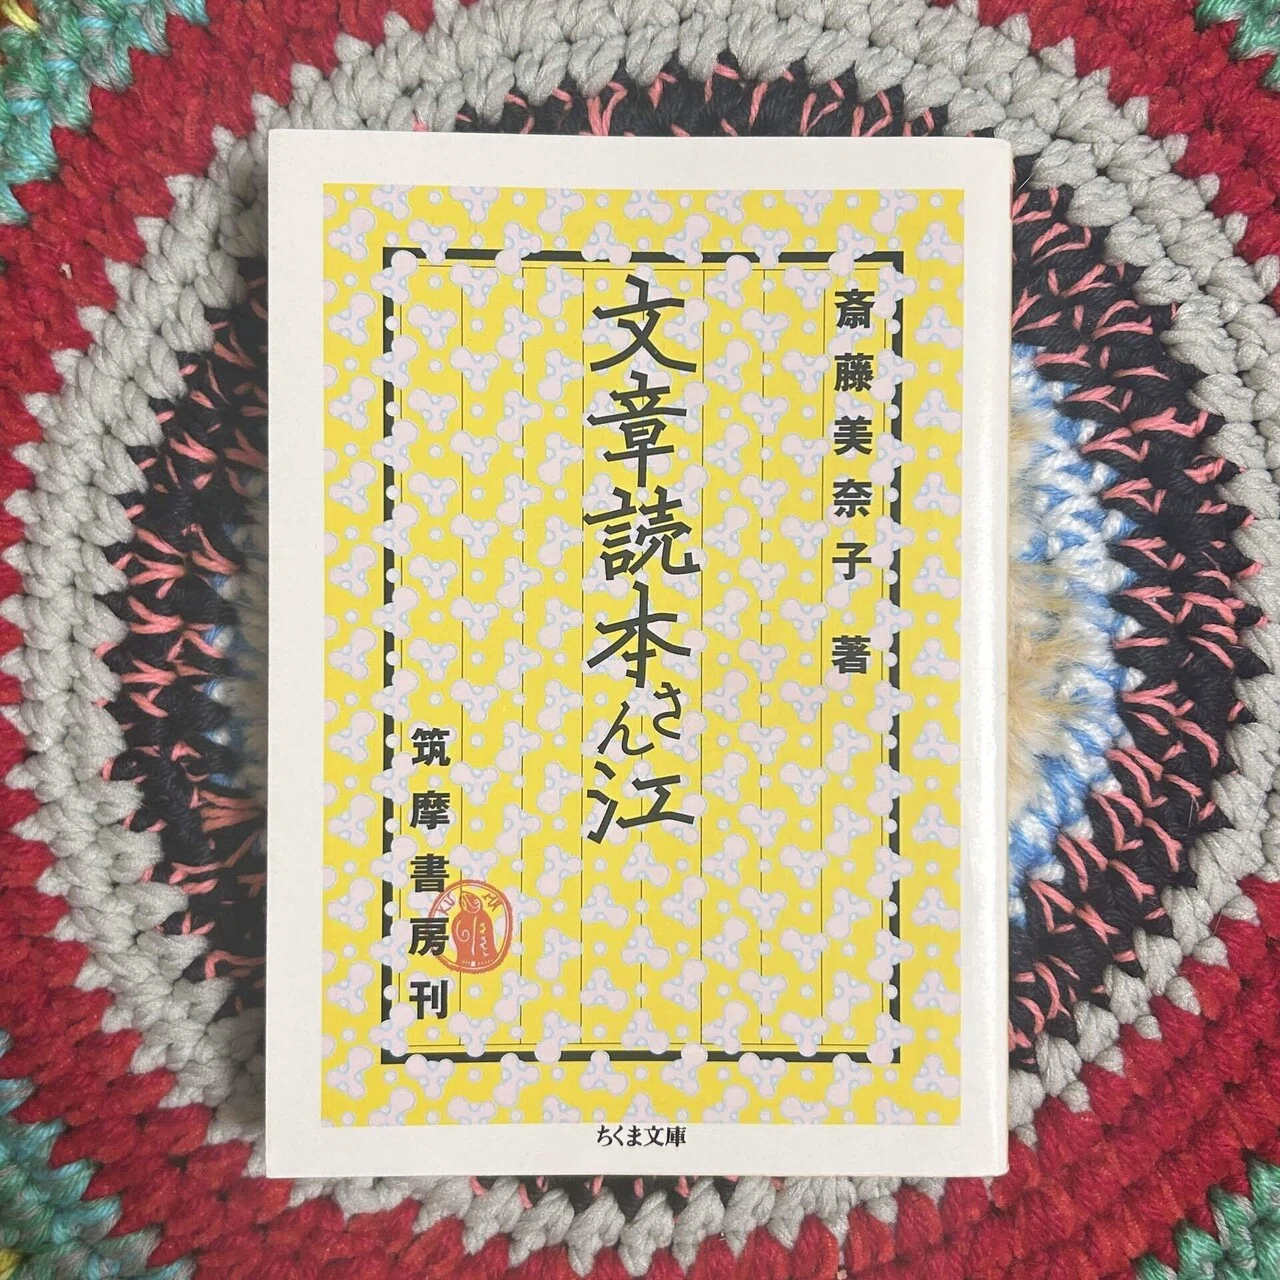 斎藤美奈子 著
文章読本さん江
筑摩書房刊
ちくま文庫